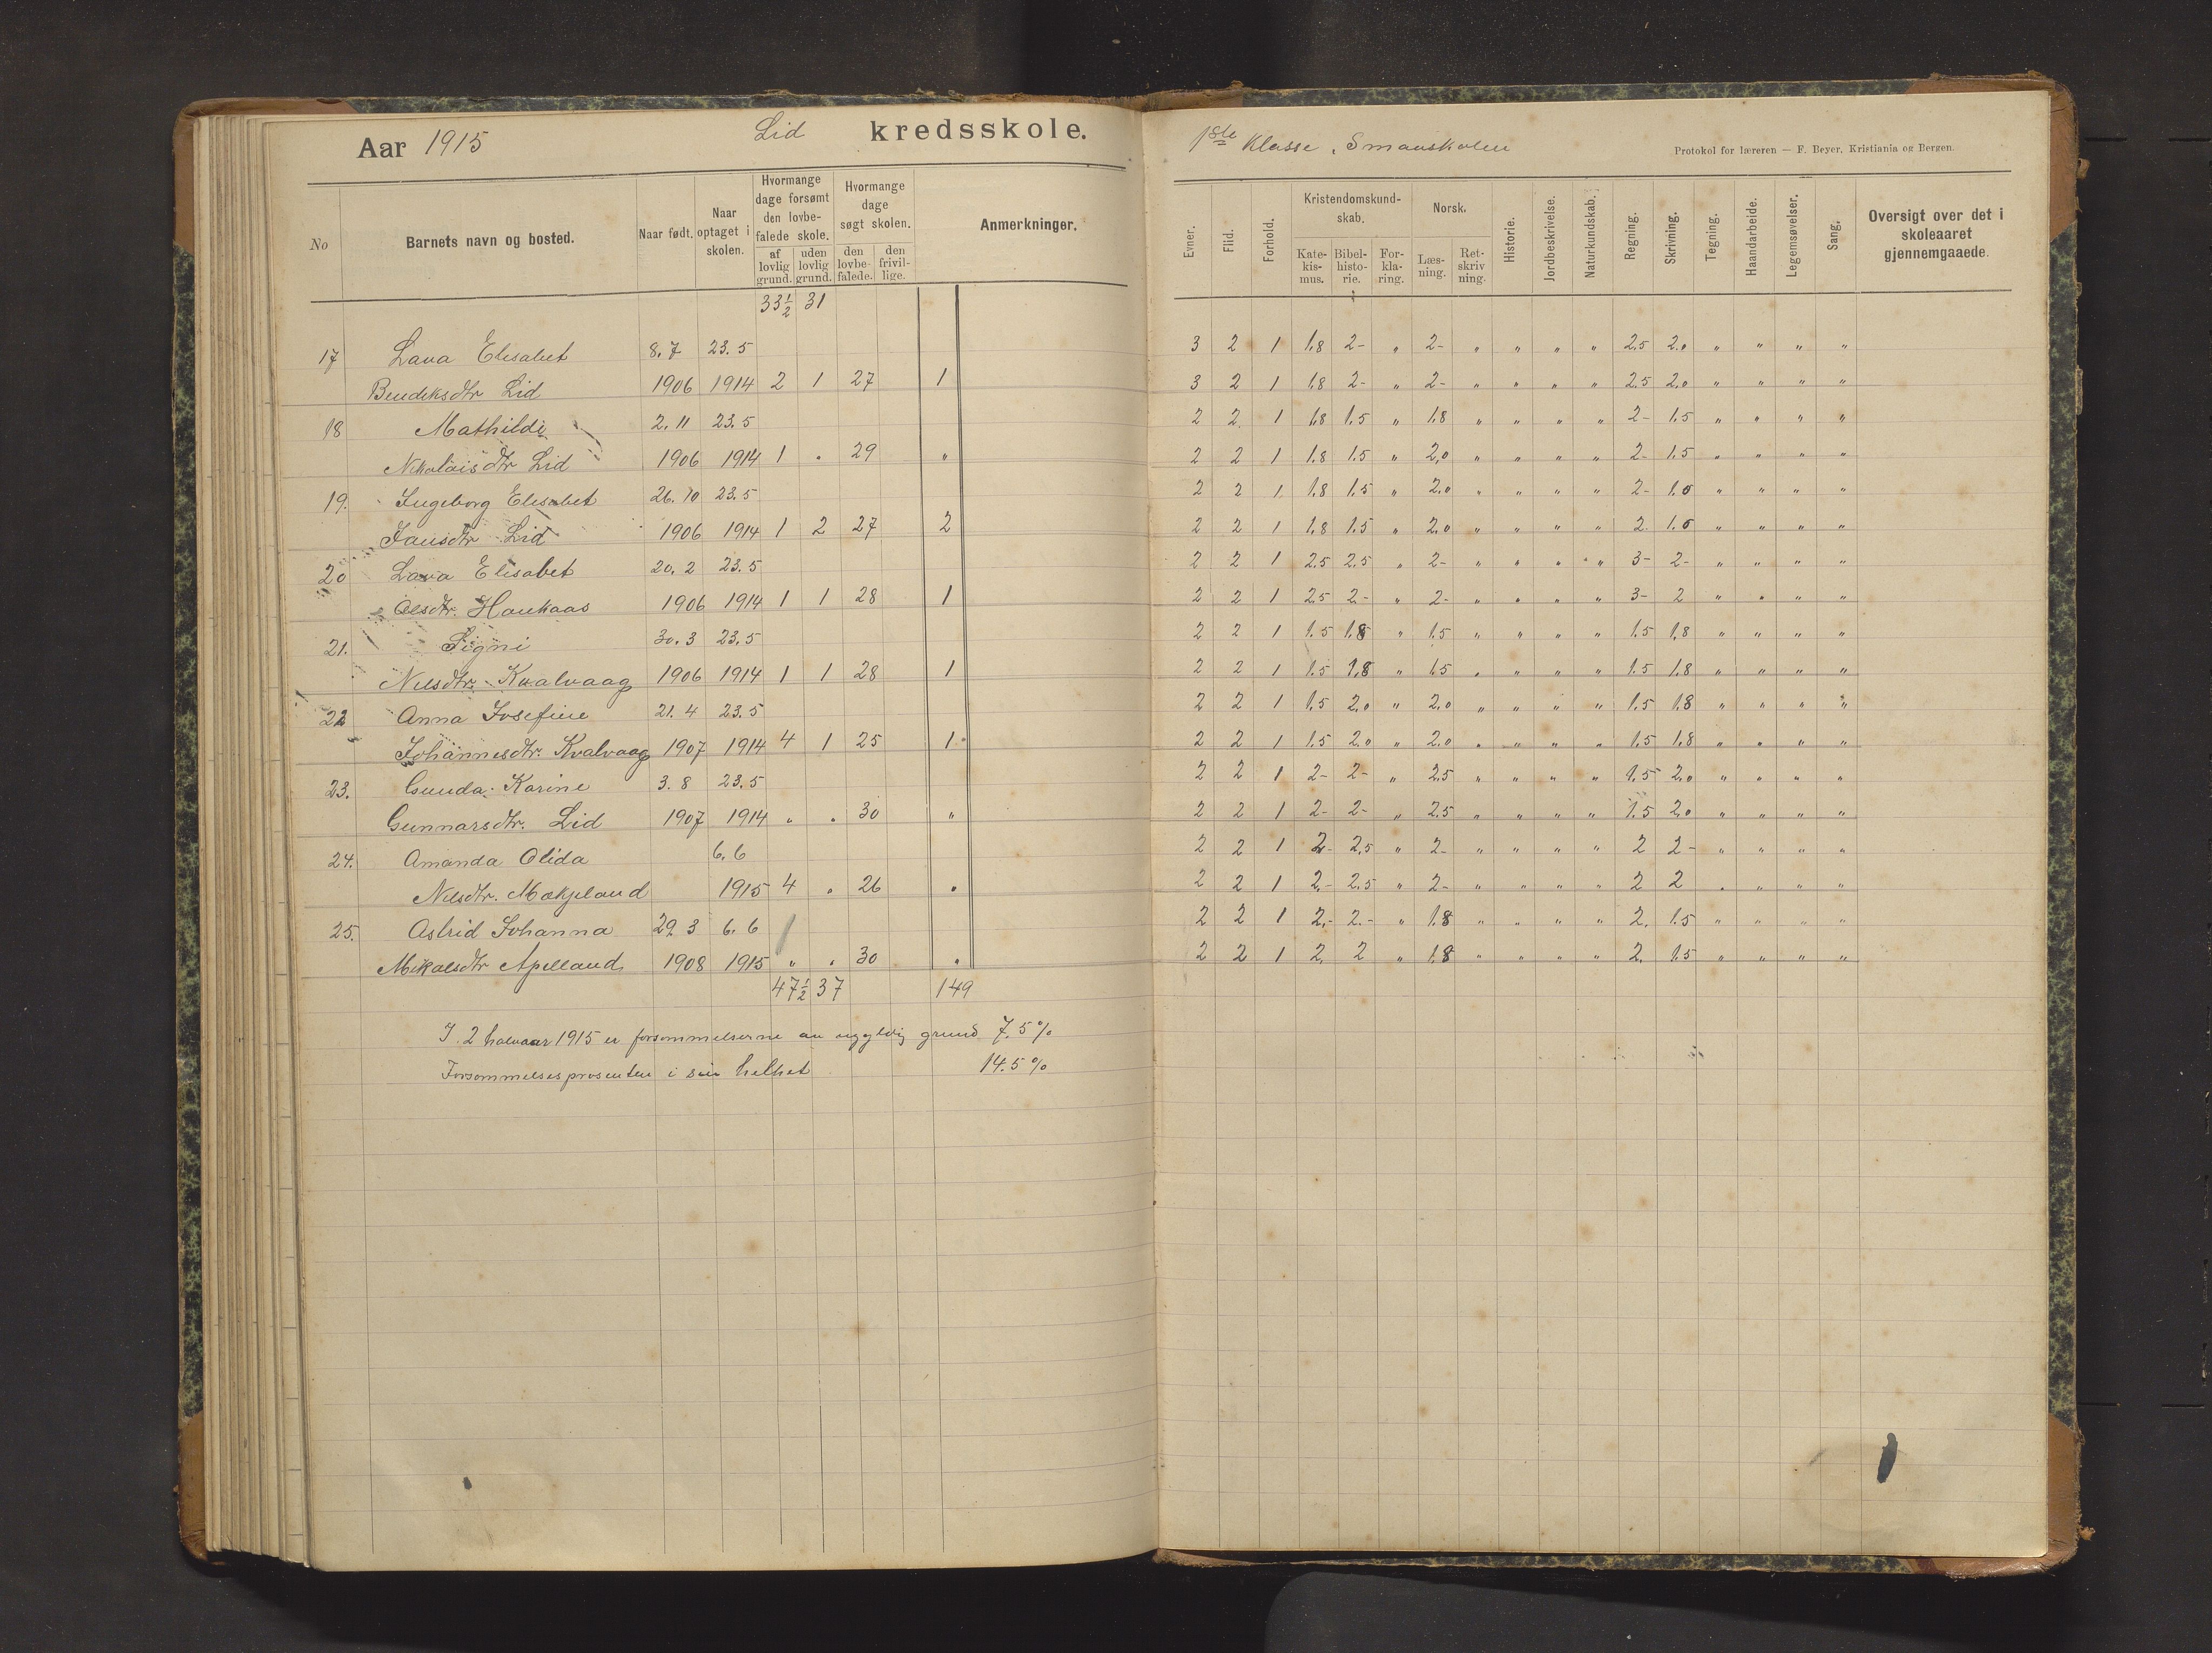 Aar 1915 Lid kredsskole.
No Barnets navn og bosted. Naar født. Naar optaget i skolen. Hvormange dage forsømt den lovbefalede skole. af lovlig grund. uden lovlig grund. Hvormange dage søgt skolen. den lovbefalede. den frivillige. Anmerkninger.
33½ 31
17 Lava Elisabet 8.7 23.5
Bendiksdtr Lid 1906 1914 2 1 27 1
18 Mathilde 2.11 23.5
Nikolaisdtr Lid 1906 1914 1 " 29 "
19. Ingeborg Elisabet 26.10 23.5
Jansdtr Lid 1906 1914 1 2 27 2
20 Lava Elisabet 20.2 23.5
Olsdtr. Haukaas 1906 1914 1 1 28 1
21. Signi 30.3 23.5
Nilsdtr. Kvalvaag 1906 1914 1 1 28 1
22 Anna Josefine 21.4 23.5
Johannesdtr. Kvalvaag 1907 1914 4 1 25 1
23. Gunda Karine 3.8 23.5
Gunnarsdtr. Lid 1907 1914 " " 30 "
24. Amanda Olida 6.6
Nilsdtr. Mækjeland 1915 4 " 26 "
25. Astrid Johanna 29.3 6.6
Mikalsdtr Apelland 1908 1915 " " 30 "
47½ 37 149
I 2 halvaar 1915 er forsømmelserne av ugyldig grund 7,5 %
Forsømmelsesprosenten i sin helhet 14.5 %
1ste Klasse, Smaaskolen
Protokol for læreren — F. Beyer, Kristiania og Bergen.
Evner. Flid. Forhold. Kristendomskundskab. Katekismus. Bibelhistorie. Forklaring. Norsk. Læsning. Retskrivning. Historie. Jordbeskrivelse. Naturkundskab. Regning. Skrivning. Tegning. Haandarbeide. Legemsøvelser. Sang. Oversigt over det i skoleaaret gjennemgaaede.
3 2 1 1.8 2- " 2- " " " " 2.5 2.0 " " " "
3 2 1 1.8 2- " 2- " " " " 2.5 2.0 " " " "
2 2 1 1.8 1.5 " 1.8 " " " " 2- 1.5 " " " "
2 2 1 1.8 1.5 " 2.0 " " " " 2- 1.5 " " " "
2 2 1 1.8 1.5 " 2.0 " " " " 2- 1.0 " " " "
2 2 1 1.8 1.5 " 2.0 " " " " 2 1.0 " " " "
2 2 1 2.5 2.5 " 2- " " " " 3- 2- " " " "
2 2 1 2.5 2- " 2- " " " " 3- 2 " " " "
2 2 1 1.5 1.8 " 1.5 " " " " 1.5 1.8 " " " "
2 2 1 1.5 1.8 " 1.5 " " " " 1.5 1.8 " " " "
2 2 1 1.5 2.0 " 2.0 " " " " 1.5 1.8 " " " "
2 2 1 1.5 2.0 " 2.0 " " " " 1.5 1.8 " " " "
2 2 1 2- 2- " 2.5 " " " " 1.5 2.0 " " " "
2 2 1 2- 2- " 2.5 " " " " 1.5 2.0 " " " "
2 2 1 2- 2.5 " 2- " " " " 2 2- " " " "
2 2 1 2.- 2.5 " 2- " " " " 2 2 " " " "
2 2 1 2.- 2.- " 1.8 " " " " 2. 1.5 " " " "
2 2 1 2. 2 " 1.8 " " " " 2. 1.5 " " " "